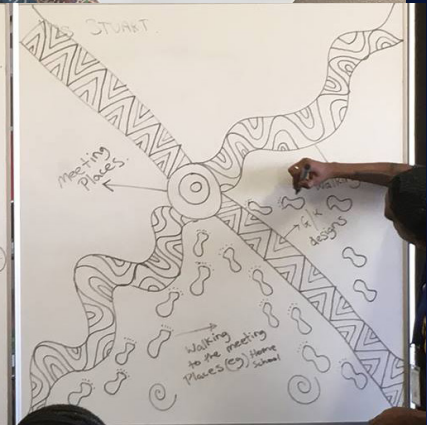 STUART.
Meeting
Places.
Walking
G/K
designs
Walking
to the meeting
Places (eg) Home
School